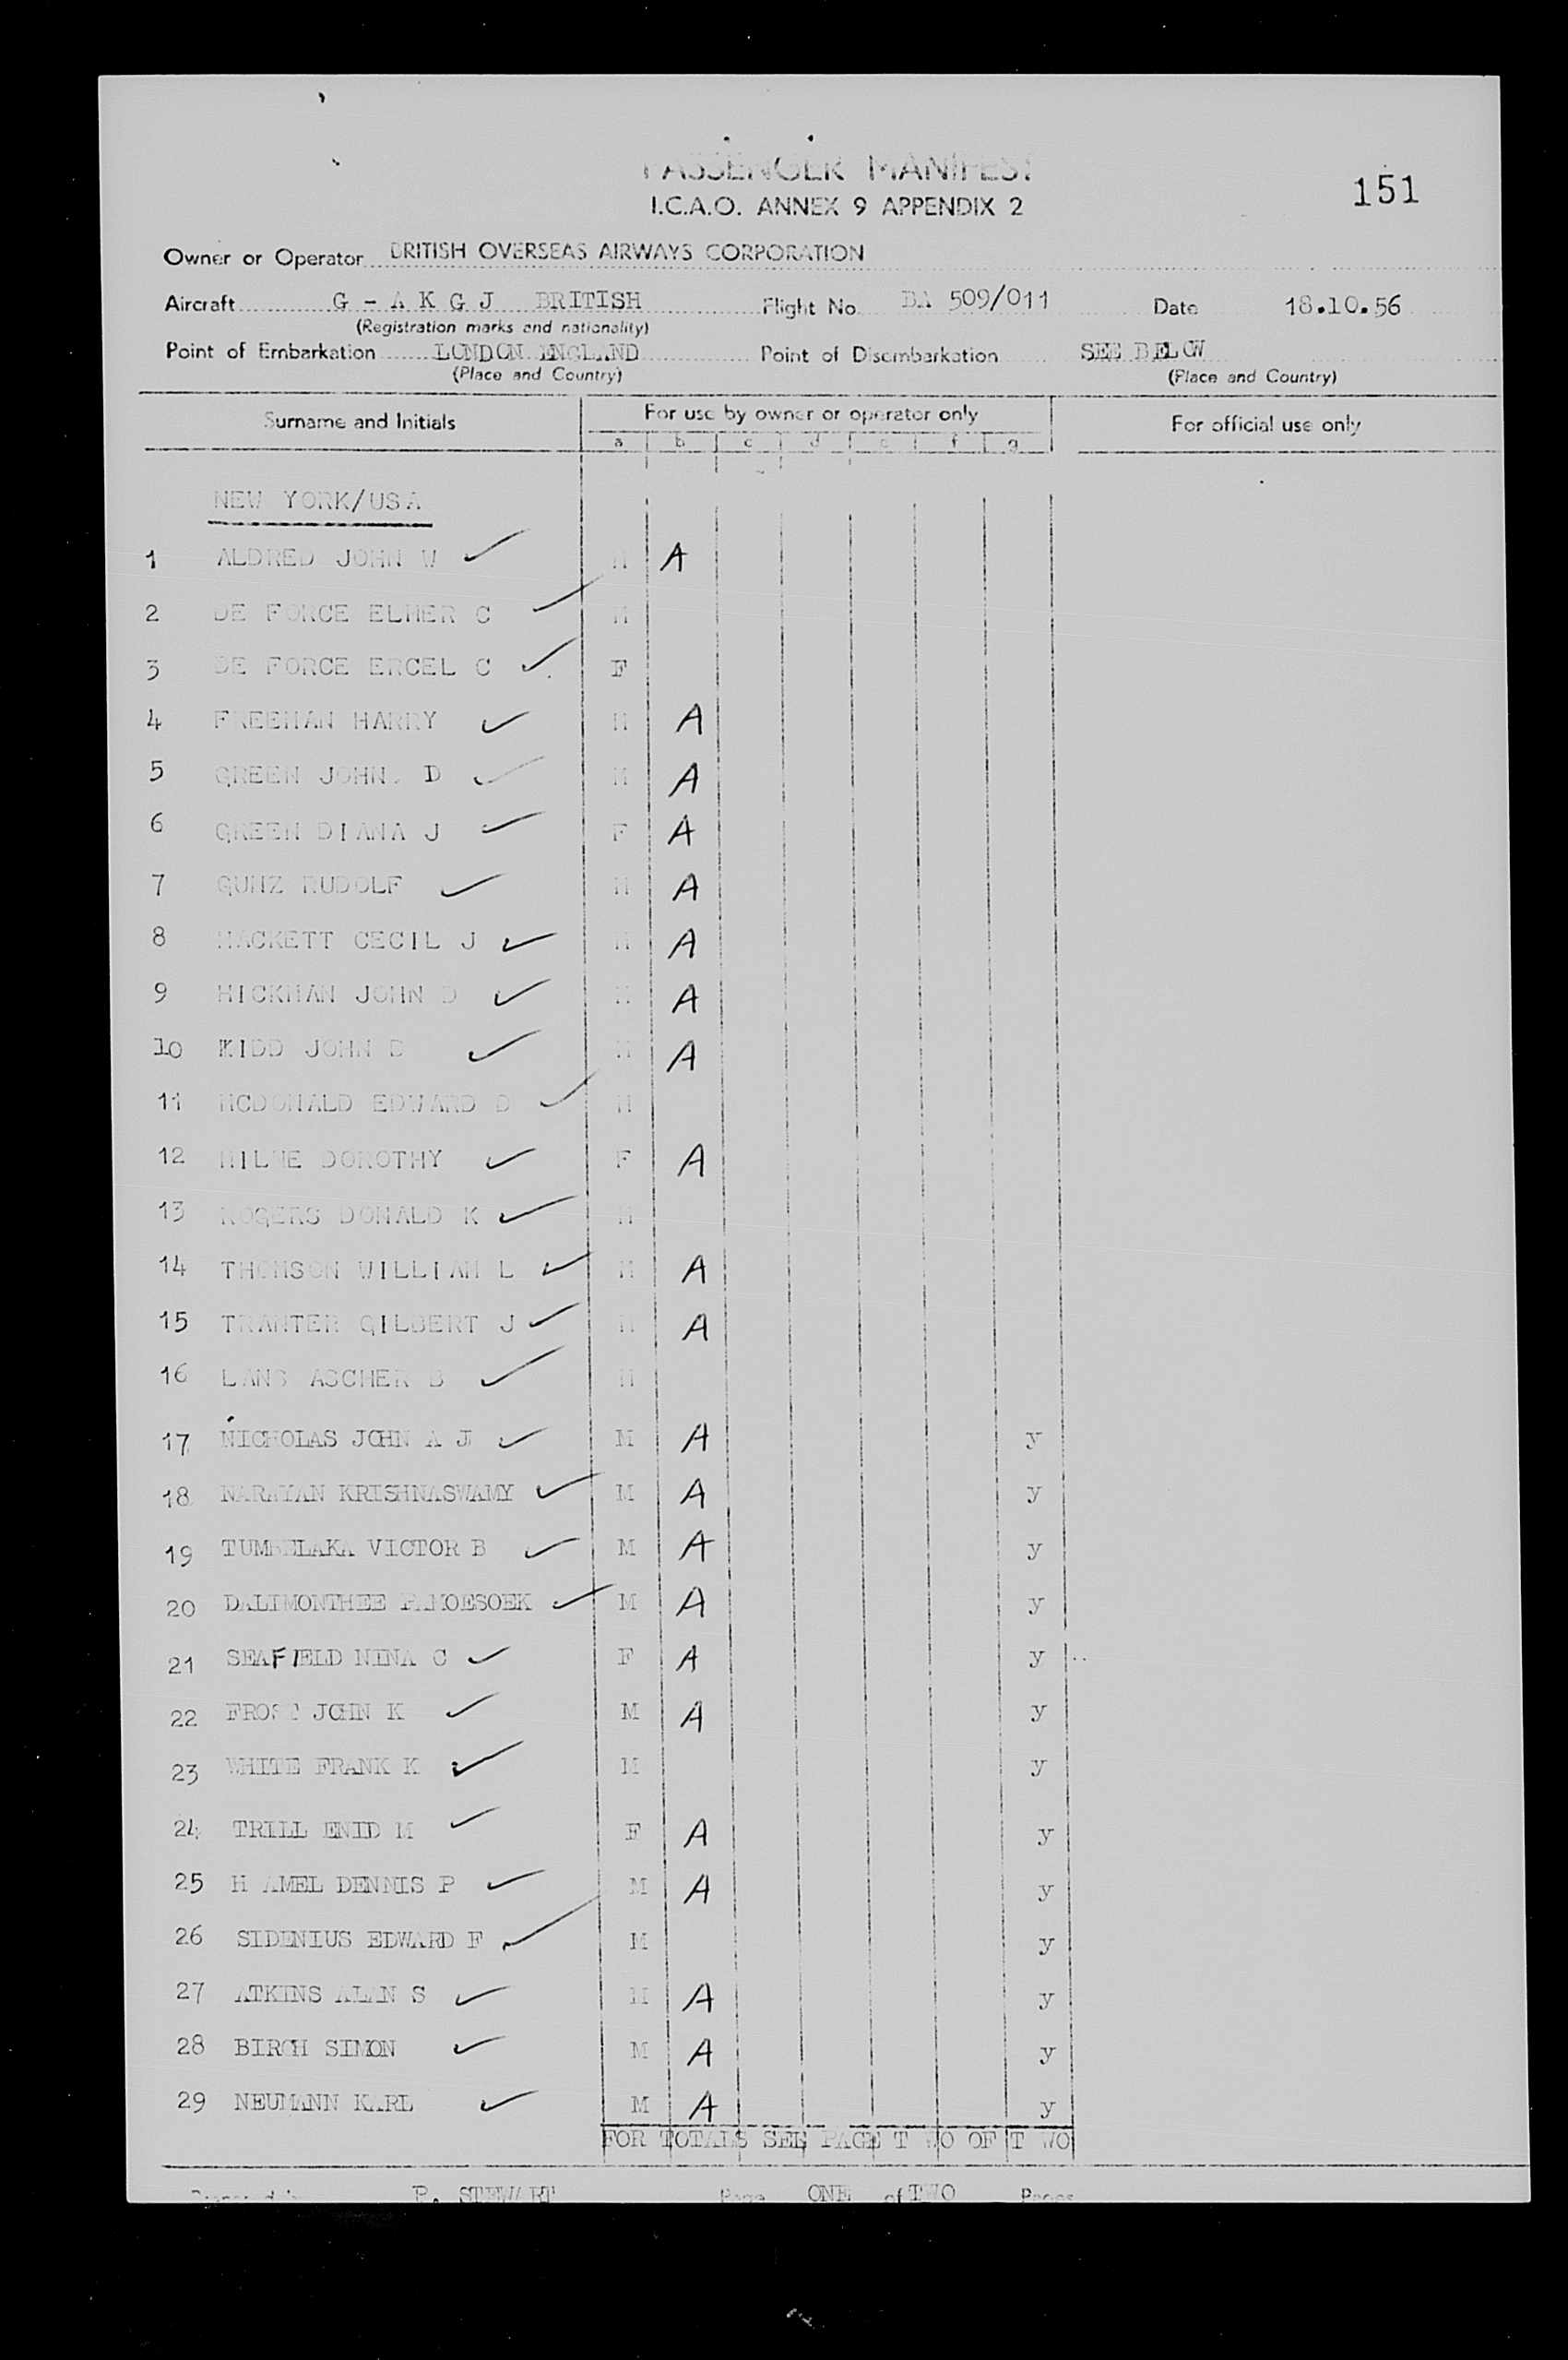 PASSENGER MANIFEST
I.C.A.O. ANNEX 9 APPENDIX 2
151
Owner or Operator BRITISH OVERSEAS AIRWAYS CORPORATION
Aircraft G - A K G J BRITISH Flight No BA 509/011 Date 18.10.56
(Registration marks and nationality)
Point of Embarkation LONDON ENGLAND Point of Disembarkation SEE BELOW
(Place and Country) (Place and Country)
Surname and Initials For use by owner or operator only For official use only
a b c d e f g
NEW YORK/USA
1 ALDRED JOHN W ✓ M A
2 DE FORCE ELMER C ✓ M
3 DE FORCE ERCEL C ✓ F
4 FREEMAN HARRY ✓ M A
5 GREEN JOHN. D ✓ M A
6 GREEN DIANA J ✓ F A
7 GUNZ RUDOLF ✓ M A
8 HACKETT CECIL J ✓ M A
9 HICKMAN JOHN D ✓ M A
10 KIDD JOHN ✓ M A
11 MCDONALD EDWARD D ✓ M
12 MILNE DOROTHY ✓ F A
13 ROGERS DONALD K ✓ M
14 THOMSON WILLIAM L ✓ M A
15 TRANTER GILBERT J ✓ M A
16 LANS ASCHER B ✓ M
17 NICHOLAS JOHN A J ✓ M A y
18 NARAYAN KRISHNASWAMY ✓ M A y
19 TUMBELAKA VICTOR B ✓ M A y
20 DALIMONTHEE PAMOESOEK ✓ M A y
21 SEAFIELD NINA C ✓ F A y
22 FROST JOHN K ✓ M A y
23 WHITE FRANK K ✓ M y
24 TRILL ENID M ✓ F A y
25 H AMEL DENNIS P ✓ M A y
26 SIDENIUS EDWARD F ✓ M y
27 ATKINS ALAN S ✓ M A y
28 BIRCH SIMON ✓ M A y
29 NEUMANN KARL ✓ M A y
FOR TOTALS SEE PAGE T WO OF T WO
Prepared by P. STEWART Page ONE of TWO Pages